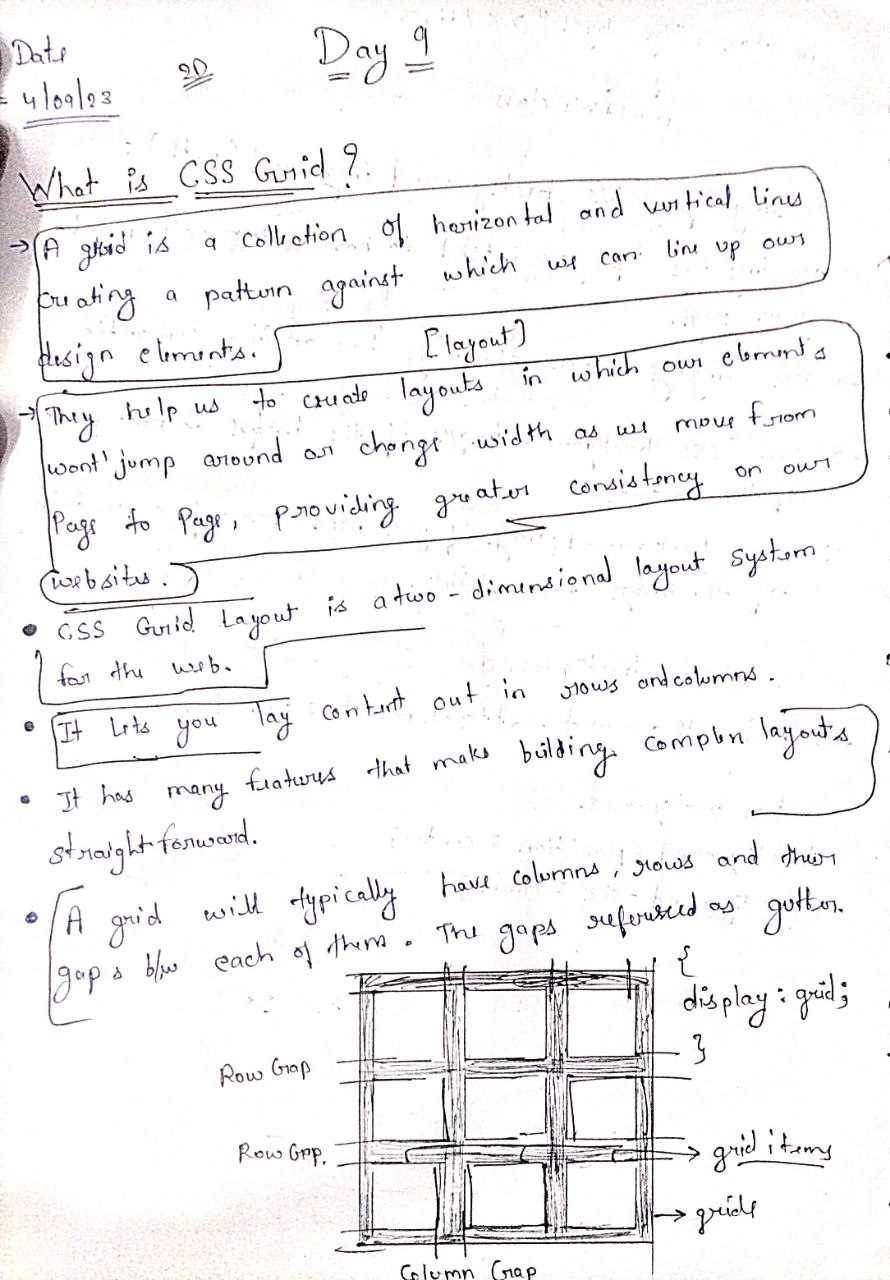 Date
4/09/23
2D
Day 9
What is CSS Grid ?
→ A grid is a collection of horizontal and vertical lines
creating a pattern against which we can line up our
design elements.
[layout]
→ They help us to create layouts in which our element's
wont' jump around or change width as we move from
Page to Page, providing greater consistency on our
websites.
• CSS Grid Layout is a two-dimensional layout system
for the web.
• It Lets you lay content out in rows and columns.
• It has many features that make building complex layouts
straight forward.
• A grid will typically have columns, rows and their
gaps b/w each of them. The gaps refereed as gutter.
{
display : grid;
}
Row Gap
Row Gap.
→ grid items
→ grids
Column Gap